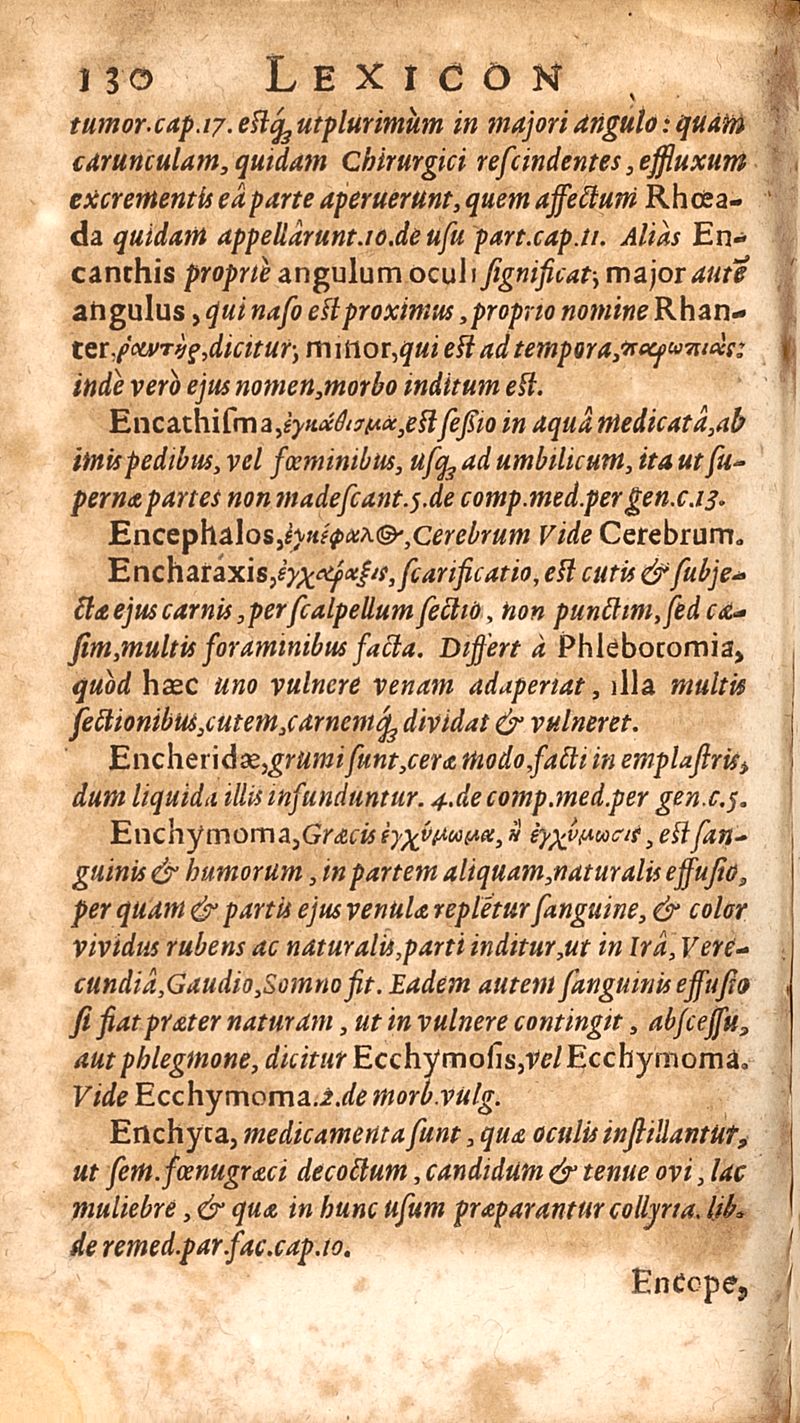 130 LEXICON
tumor.cap.17. estq́ꝫ utplurimùm in majori angulo: quam
carunculam, quidam Chirurgici reſcindentes, effluxum
excrementis eâ parte aperuerunt, quem affectum Rhœa-
da quidam appellârunt.10.de uſu part.cap.11. Aliàs En-
canthis propriè angulum oculi ſignificat; major autē
angulus, qui naſo est proximus, proprio nomine Rhan-
ter,ῥαντὴρ,dicitur; minor,qui est ad tempora,παρωπιὰς:
indè verò ejus nomen,morbo inditum est.
Encathiſma,ἐγκάθισμα,est ſeßio in aquâ medicatâ,ab
imis pedibus, vel fœminibus, uſqꝫ ad umbilicum, ita ut ſu-
pernæ partes non madeſcant.5.de comp.med.per gen.c.13.
Encephalos,ἐγκέφαλ㋛,Cerebrum Vide Cerebrum.
Encharaxis,ἐγχάραξις, ſcarificatio, est cutis & ſubje-
ctæ ejus carnis, per ſcalpellum ſectio, non punctim, ſed cæ-
ſim,multis foraminibus facta. Differt à Phlebotomia,
quòd hæc uno vulnere venam adaperiat, illa multis
ſectionibus,cutem,carnemq́ꝫ dividat & vulneret.
Encheridæ,grumi ſunt,ceræ modo,facti in emplaſtris,
dum liquida illis infunduntur. 4.de comp.med.per gen.c.5.
Enchymoma,Græcis ἐγχύμωμα, ἢ ἐγχύμωσις, est ſan-
guinis & humorum, in partem aliquam,naturalis effuſio,
per quam & partis ejus venulæ replētur ſanguine, & color
vividus rubens ac naturalis,parti inditur,ut in Irâ, Vere-
cundiâ,Gaudio,Somno fit. Eadem autem ſanguinis effuſio
ſi fiat præter naturam, ut in vulnere contingit, abſceſſu,
aut phlegmone, dicitur Ecchymoſis,vel Ecchymoma.
Vide Ecchymoma.2.de morb.vulg.
Enchyta, medicamenta ſunt, quæ oculis inſtillantur,
ut ſem.fœnugræci decoctum, candidum & tenue ovi, lac
muliebre, & quæ in hunc uſum præparantur collyria. lib.
de remed.par.fac.cap.10.
Encope,